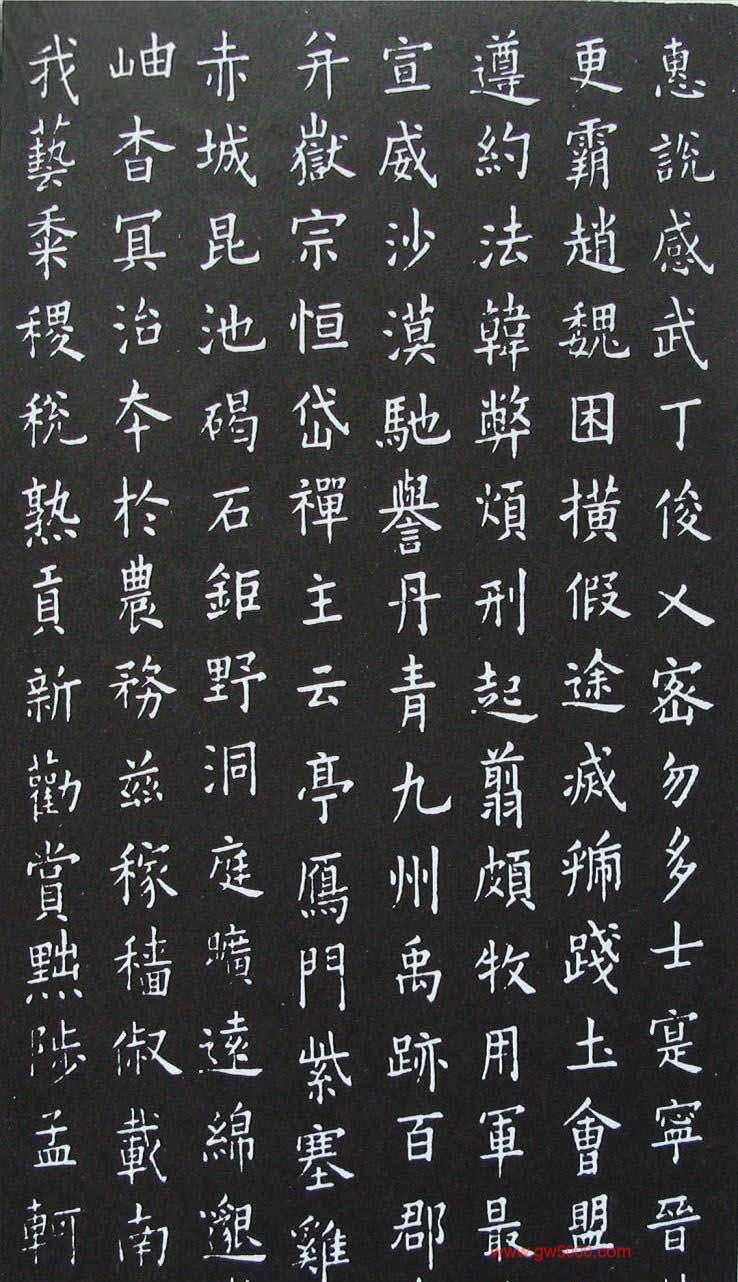 惠說感武丁俊乂密勿多士寔寧晉
更霸趙魏困橫假途滅虢踐土會盟
遵約法韓弊煩刑起翦頗牧用軍最
宣威沙漠馳譽丹青九州禹跡百郡
并嶽宗恒岱禪主云亭鴈門紫塞雞
赤城昆池碣石鉅野洞庭曠遠綿邈
岫杳冥治本於農務茲稼穡俶載南
我藝黍稷稅熟貢新勸賞黜陟孟軻